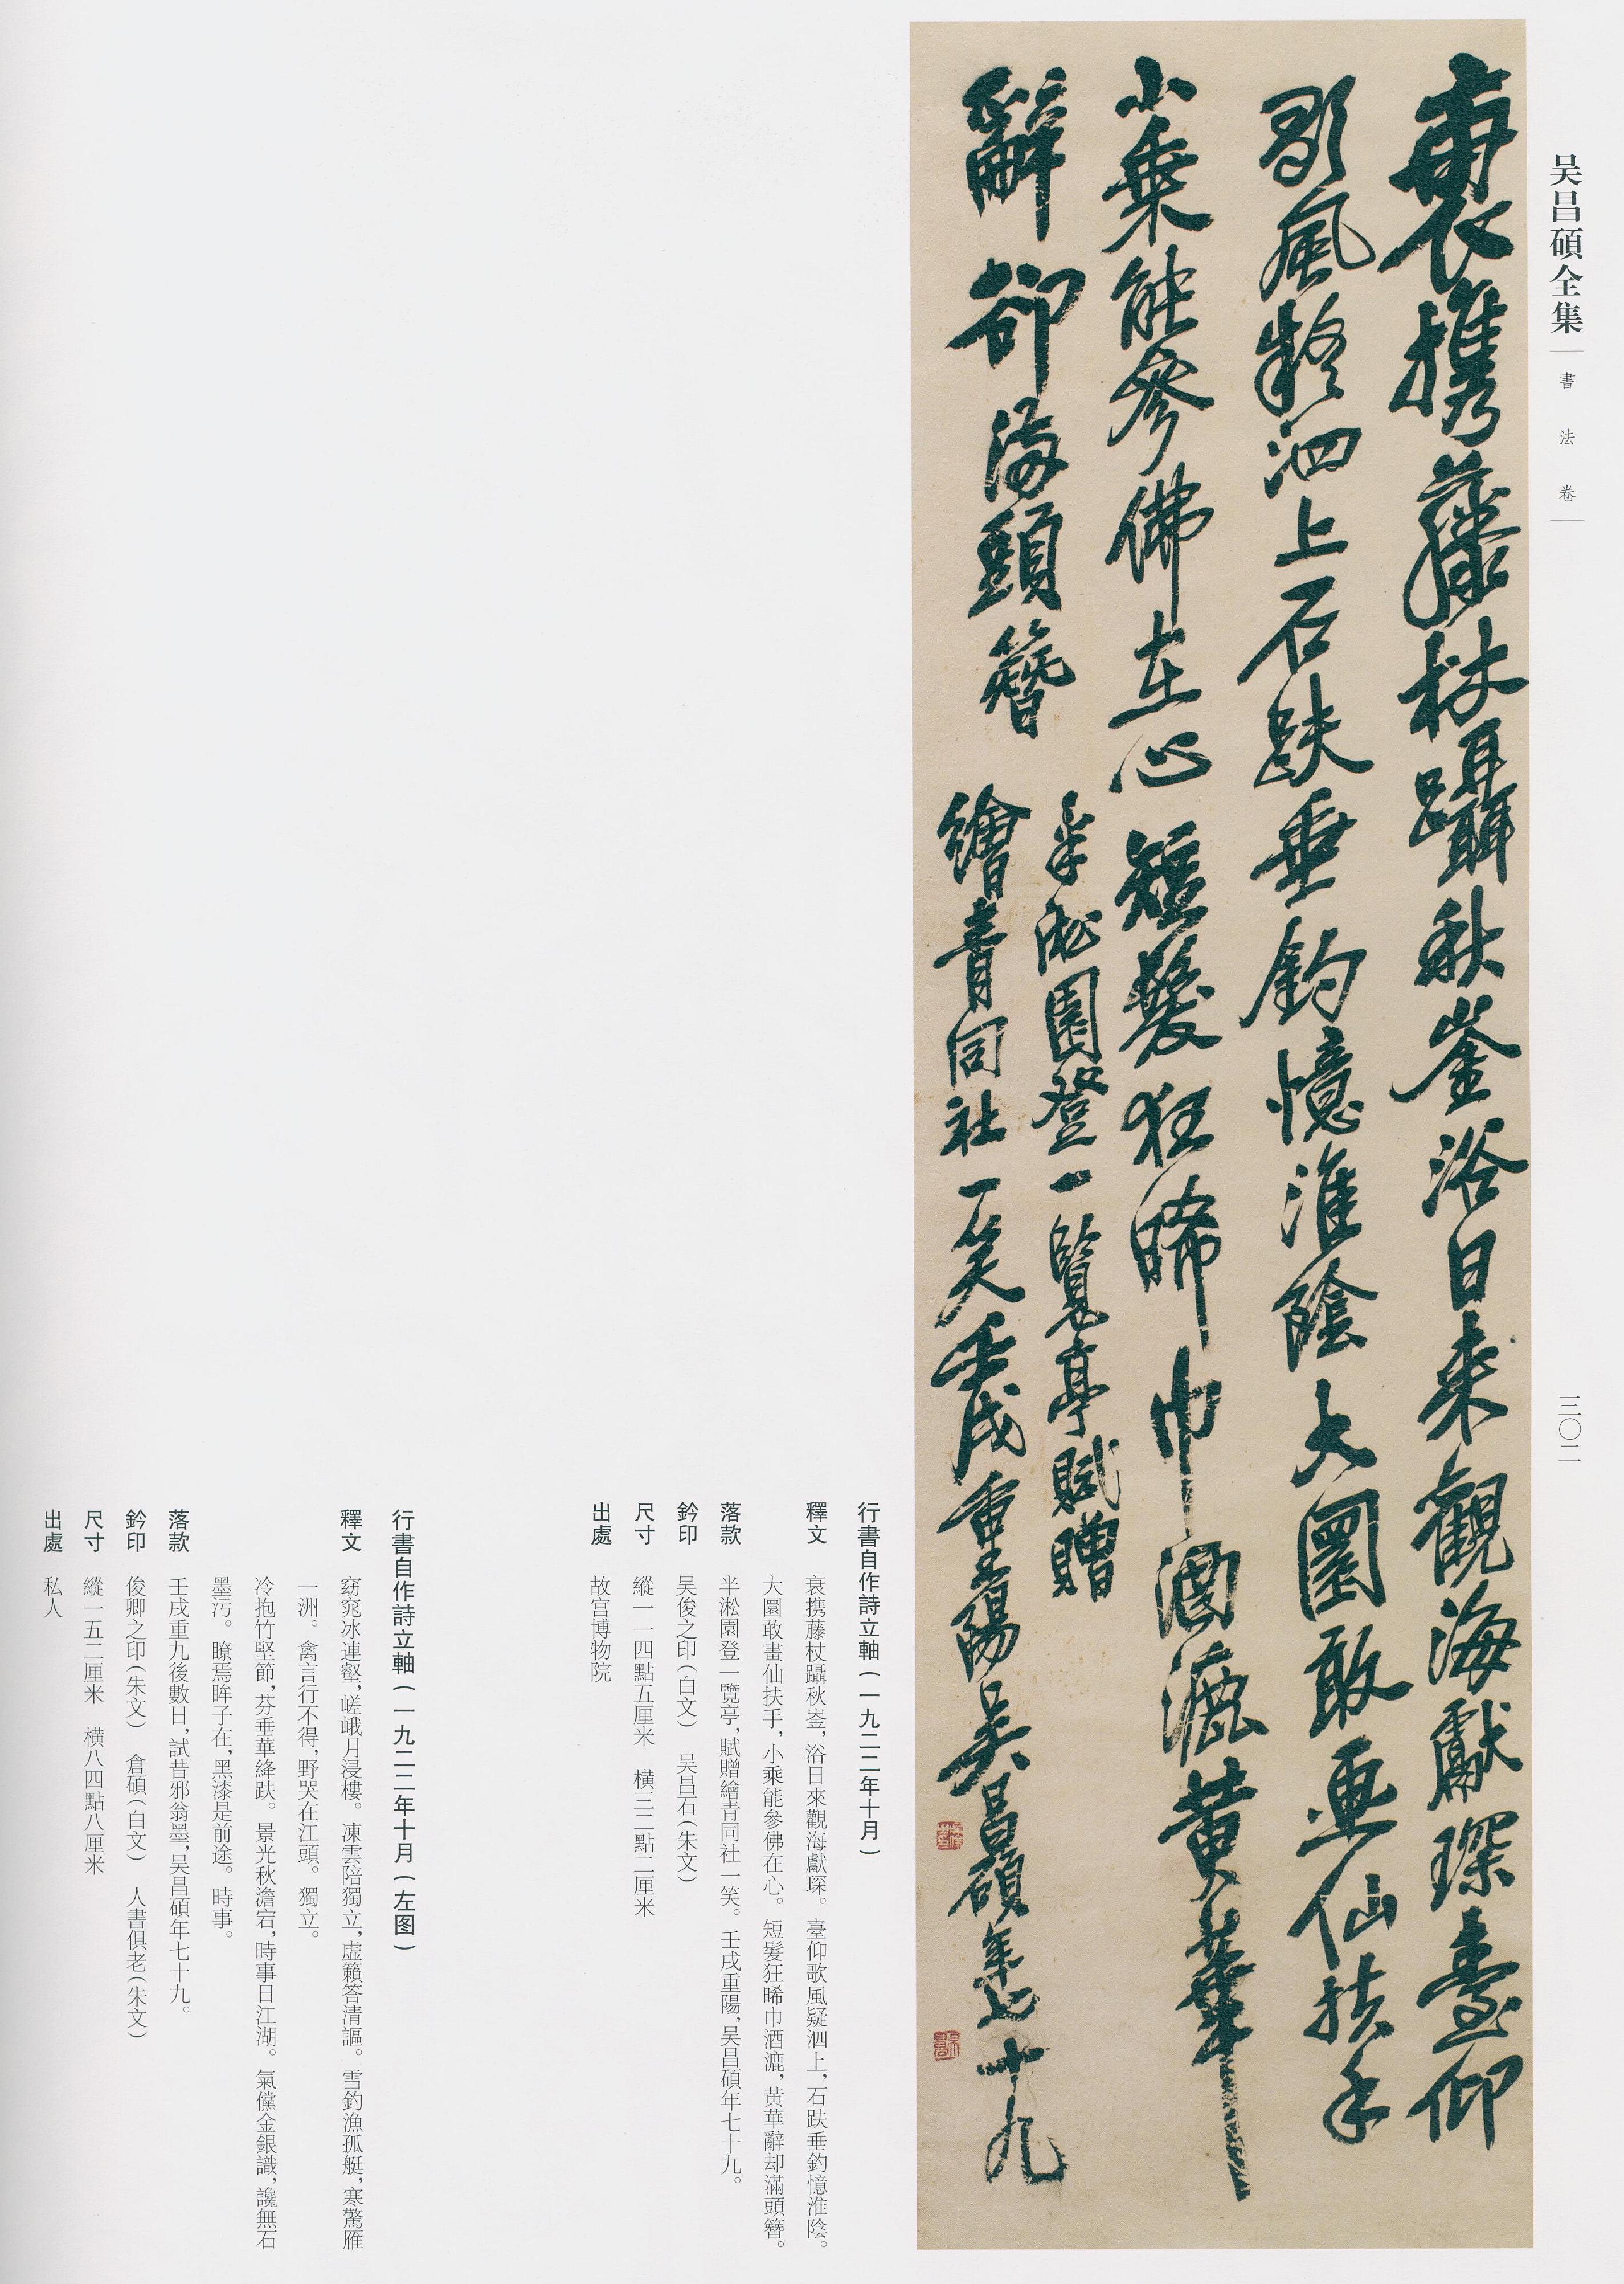 吴昌碩全集
書法卷
三〇二
衰攜藤杖躡秋崟浴日来觀海獻琛臺仰
歌風疑泗上石趺垂釣憶淮陰大圜敢畫仙扶手
小乘能參佛在心短髮狂晞巾酒漉黄華
辭卻滿頭簪
半淞園登一覽亭賦贈
繪青同社一笑壬戌重陽吴昌碩年七十九
行書自作詩立軸(一九二二年十月)
釋文 衰携藤杖躡秋崟,浴日來觀海獻琛。臺仰歌風疑泗上,石趺垂釣憶淮陰。
大圜敢畫仙扶手,小乘能參佛在心。短髮狂晞巾酒漉,黄華辭却滿頭簪。
落款 半淞園登一覽亭,賦贈繪青同社一笑。壬戌重陽,吴昌碩年七十九。
鈐印 吴俊之印(白文) 吴昌石(朱文)
尺寸 縱一一四點五厘米 橫三二點二厘米
出處 故宫博物院
行書自作詩立軸(一九二二年十月(左图)
釋文 窈窕冰連壑,嵯峨月浸樓。凍雲陪獨立,虚籟答清謳。雪釣漁孤艇,寒驚雁
一洲。禽言行不得,野哭在江頭。獨立。
冷抱竹堅節,芬垂華絳趺。景光秋澹宕,時事日江湖。氣儻金銀識,讒無石
墨污。瞭焉眸子在,黑漆是前途。時事。
落款 壬戌重九後數日,試昔邪翁墨,吴昌碩年七十九。
鈐印 俊卿之印(朱文) 倉碩(白文) 人書俱老(朱文)
尺寸 縱一五二厘米 橫八四點八厘米
出處 私人